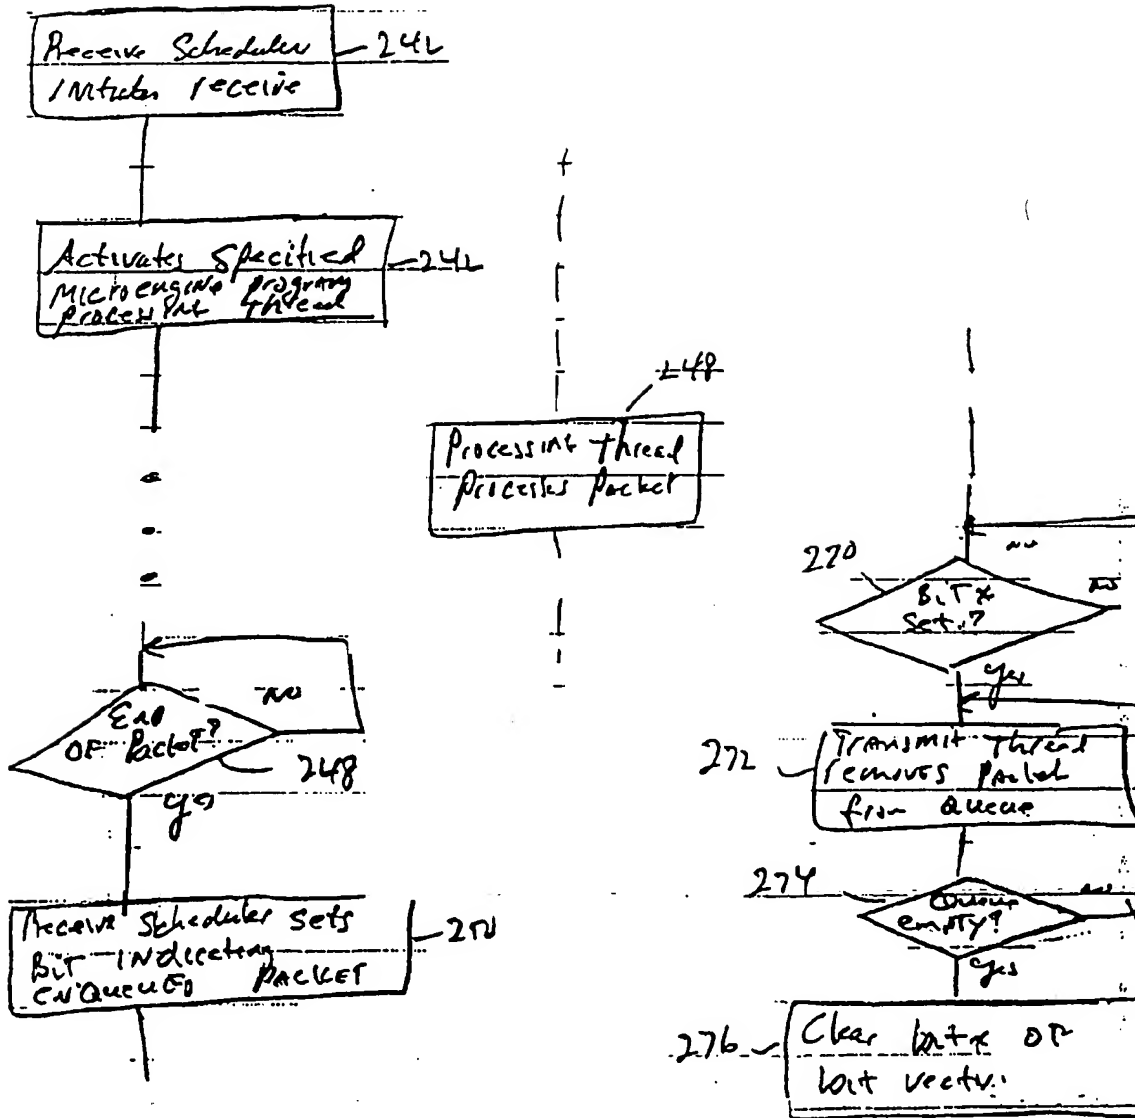 Receive Scheduler
Initiates receive
242
Activates Specified
Microengine program
processing thread
242
248
Processing thread
processes packet
End
OF Packet?
NO
248
yes
Receive Scheduler Sets
Bit indicating
ENQUEUED PACKET
250
NO
270
Bit x
Set?
NO
yes
272
Transmit thread
removes Packet
from Queue
274
Queue
empty?
NO
yes
276
Clear bit x OF
bit vector